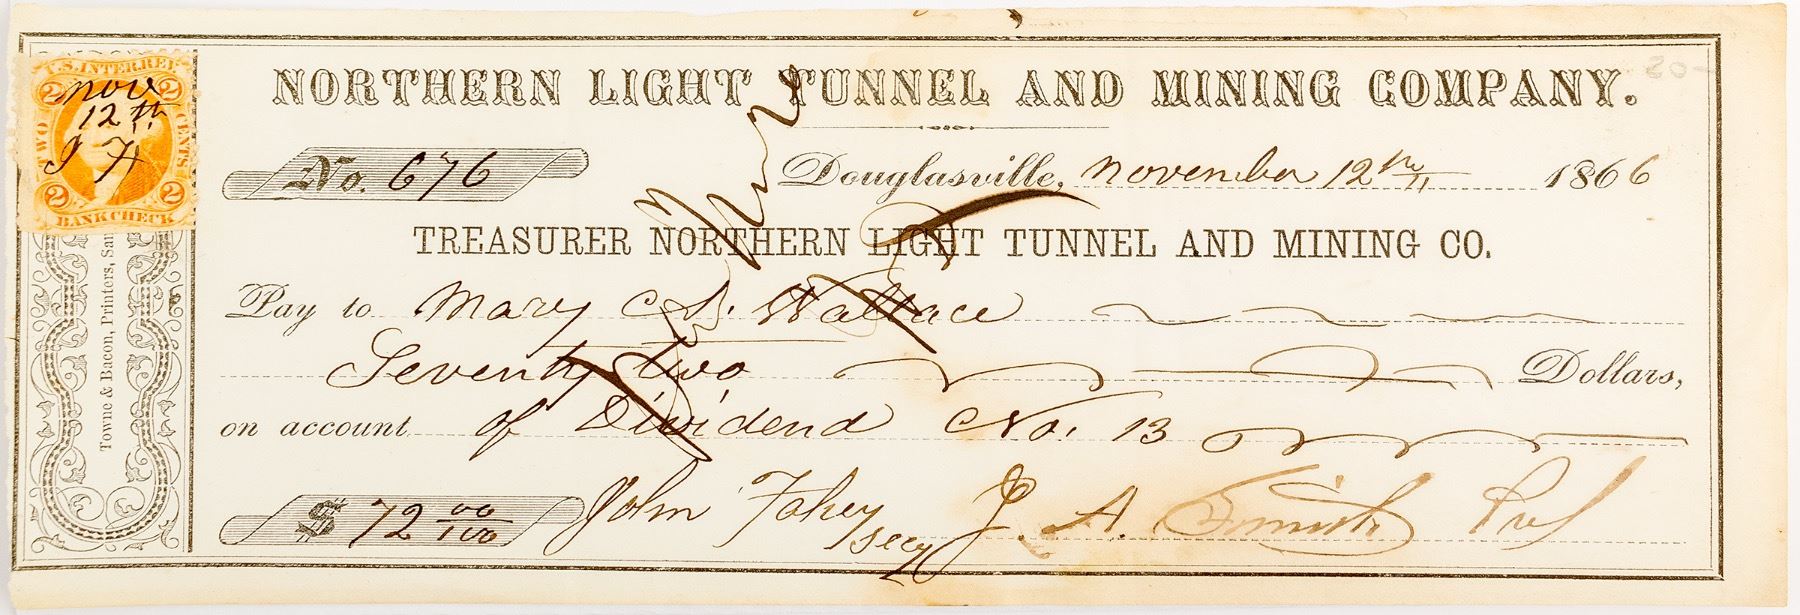 U.S. INTER. REV.
2 2
TWO CENTS
nov
12 th
J F
2 2
BANK CHECK
Towne & Bacon, Printers, San
NORTHERN LIGHT TUNNEL AND MINING COMPANY.
No. 676
Douglasville, november 12th 1866
TREASURER NORTHERN LIGHT TUNNEL AND MINING CO.
Pay to Mary C. S. Wallace
Seventy two Dollars,
on account of Dividend No. 13
$ 72 00/100
John Fahey
secy
J. A. Smith Prest